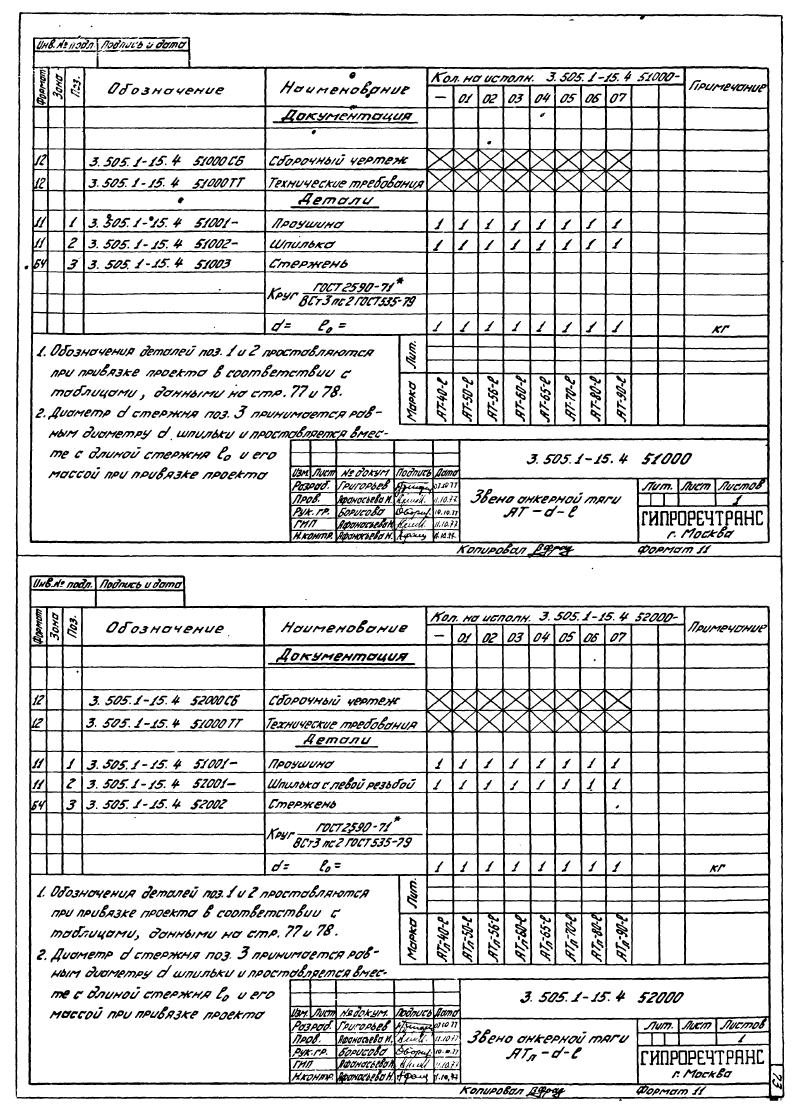 Инв. № подл. Подпись и дата
Формат Зона Поз. Обозначение Наименование Кол. на исполн. 3.505.1-15.4 51000- Примечание
— 01 02 03 04 05 06 07
Документация
12 3.505.1-15.4 51000СБ Сборочный чертеж
12 3.505.1-15.4 51000ТТ Технические требования
Детали
11 1 3.505.1-15.4 51001- Проушина 1 1 1 1 1 1 1 1
11 2 3.505.1-15.4 51002- Шпилька 1 1 1 1 1 1 1 1
БЧ 3 3.505.1-15.4 51003 Стержень
Круг ГОСТ 2590-71*
ВСт3пс2 ГОСТ 535-79
d= ℓ₀= 1 1 1 1 1 1 1 1 кг
1. Обозначения деталей поз. 1 и 2 проставляются
при привязке проекта в соответствии с
таблицами, данными на стр. 77 и 78.
2. Диаметр d стержня поз. 3 принимается рав-
ным диаметру d шпильки и проставляется вмес-
те с длиной стержня ℓ₀ и его
массой при привязке проекта
Лит.
Марка АТ-40-ℓ АТ-50-ℓ АТ-55-ℓ АТ-60-ℓ АТ-65-ℓ АТ-70-ℓ АТ-80-ℓ АТ-90-ℓ
3.505.1-15.4 51000
Изм. Лист № докум. Подпись Дата
Разраб. Григорьев
Пров. Афанасьева Н. 11.10.77
Рук. гр. Борисова 10.10.77
ГИП Афанасьева Н. 11.10.77
Н.контр. Афанасьева Н.
Звено анкерной тяги
АТ-d-ℓ
Лит. Лист Листов
1
ГИПРОРЕЧТРАНС
г. Москва
Копировал Формат 11
Инв. № подл. Подпись и дата
Формат Зона Поз. Обозначение Наименование Кол. на исполн. 3.505.1-15.4 52000- Примечание
— 01 02 03 04 05 06 07
Документация
12 3.505.1-15.4 52000СБ Сборочный чертеж
12 3.505.1-15.4 51000ТТ Технические требования
Детали
11 1 3.505.1-15.4 51001- Проушина 1 1 1 1 1 1 1 1
11 2 3.505.1-15.4 52001- Шпилька с левой резьбой 1 1 1 1 1 1 1 1
БЧ 3 3.505.1-15.4 52002 Стержень
Круг ГОСТ 2590-71*
ВСт3пс2 ГОСТ 535-79
d= ℓ₀= 1 1 1 1 1 1 1 1 кг
1. Обозначения деталей поз. 1 и 2 проставляются
при привязке проекта в соответствии с
таблицами, данными на стр. 77 и 78.
2. Диаметр d стержня поз. 3 принимается рав-
ным диаметру d шпильки и проставляется вмес-
те с длиной стержня ℓ₀ и его
массой при привязке проекта
Лит.
Марка АТл-40-ℓ АТл-50-ℓ АТл-56-ℓ АТл-60-ℓ АТл-65-ℓ АТл-70-ℓ АТл-80-ℓ АТл-90-ℓ
3.505.1-15.4 52000
Изм. Лист № докум. Подпись Дата
Разраб. Григорьев
Пров. Афанасьева Н. 11.10.77
Рук. гр. Борисова 10.10.77
ГИП Афанасьева Н. 11.10.77
Н.контр. Афанасьева Н. 11.10.77
Звено анкерной тяги
АТл-d-ℓ
Лит. Лист Листов
1
ГИПРОРЕЧТРАНС
г. Москва
Копировал Формат 11
73